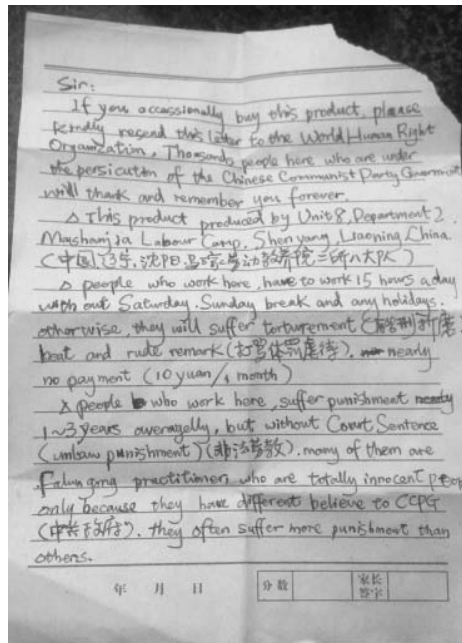 Sir:
If you occassionally buy this product, please
kindly resend this letter to the World Human Right
Organization. Thousands people here who are under
the persicution of the Chinese Communist Party Government
will thank and remember you forever.
△ This product produced by Unit 8, Department 2,
Mashanjia Labour Camp, Shenyang, Liaoning, China.
(中国辽宁,沈阳马家劳动教养院二所八大队)
△ people who work here, have to work 15 hours a day
with out Saturday, Sunday break and any holidays.
otherwise, they will suffer torturement (酷刑折磨)
beat and rude remark (打骂体罚虐待). nearly
no payment (10 yuan/1 month)
X people who work here, suffer punishment
1~3 years averagelly, but without Court Sentence
(unlaw punishment) (非法劳教). many of them are
Falungong practitioner, who are totally innocent people
only because they have different believe to CCPG
(中共政府). they often suffer more punishment than
others.
年 月 日
分数
家长
签字